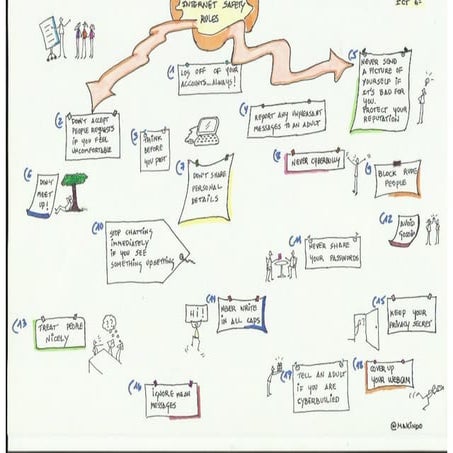 INTERNET SAFETY
RULES
ICT 6º
1
LOG OFF OF YOUR
ACCOUNTS...ALWAYS!
2
DON'T ACCEPT
PEOPLE REQUESTS
IF YOU FEEL
UNCOMFORTABLE
3
THINK
BEFORE
YOU POST
4
REPORT ANY UNPLEASANT
MESSAGES TO AN ADULT
5
NEVER SEND
A PICTURE OF
YOURSELF IF
IT'S BAD FOR
YOU.
PROTECT YOUR
REPUTATION
6
DON'T
MEET
UP!
7
DON'T SHARE
PERSONAL
DETAILS
8
NEVER CYBERBULLY
9
BLOCK RUDE
PEOPLE
10
STOP CHATTING
IMMEDIATELY
IF YOU SEE
SOMETHING UPSETTING
11
NEVER SHARE
YOUR PASSWORDS
12
AVOID
GOSSIP
13
TREAT PEOPLE
NICELY
Hi!
NEVER WRITE
IN ALL CAPS
15
KEEP YOUR
PRIVACY SECRET
IGNORE MEAN
MESSAGES
17
TELL AN ADULT
IF YOU ARE
CYBERBULLIED
18
COVER UP
YOUR WEBCAM
@MAKINDO